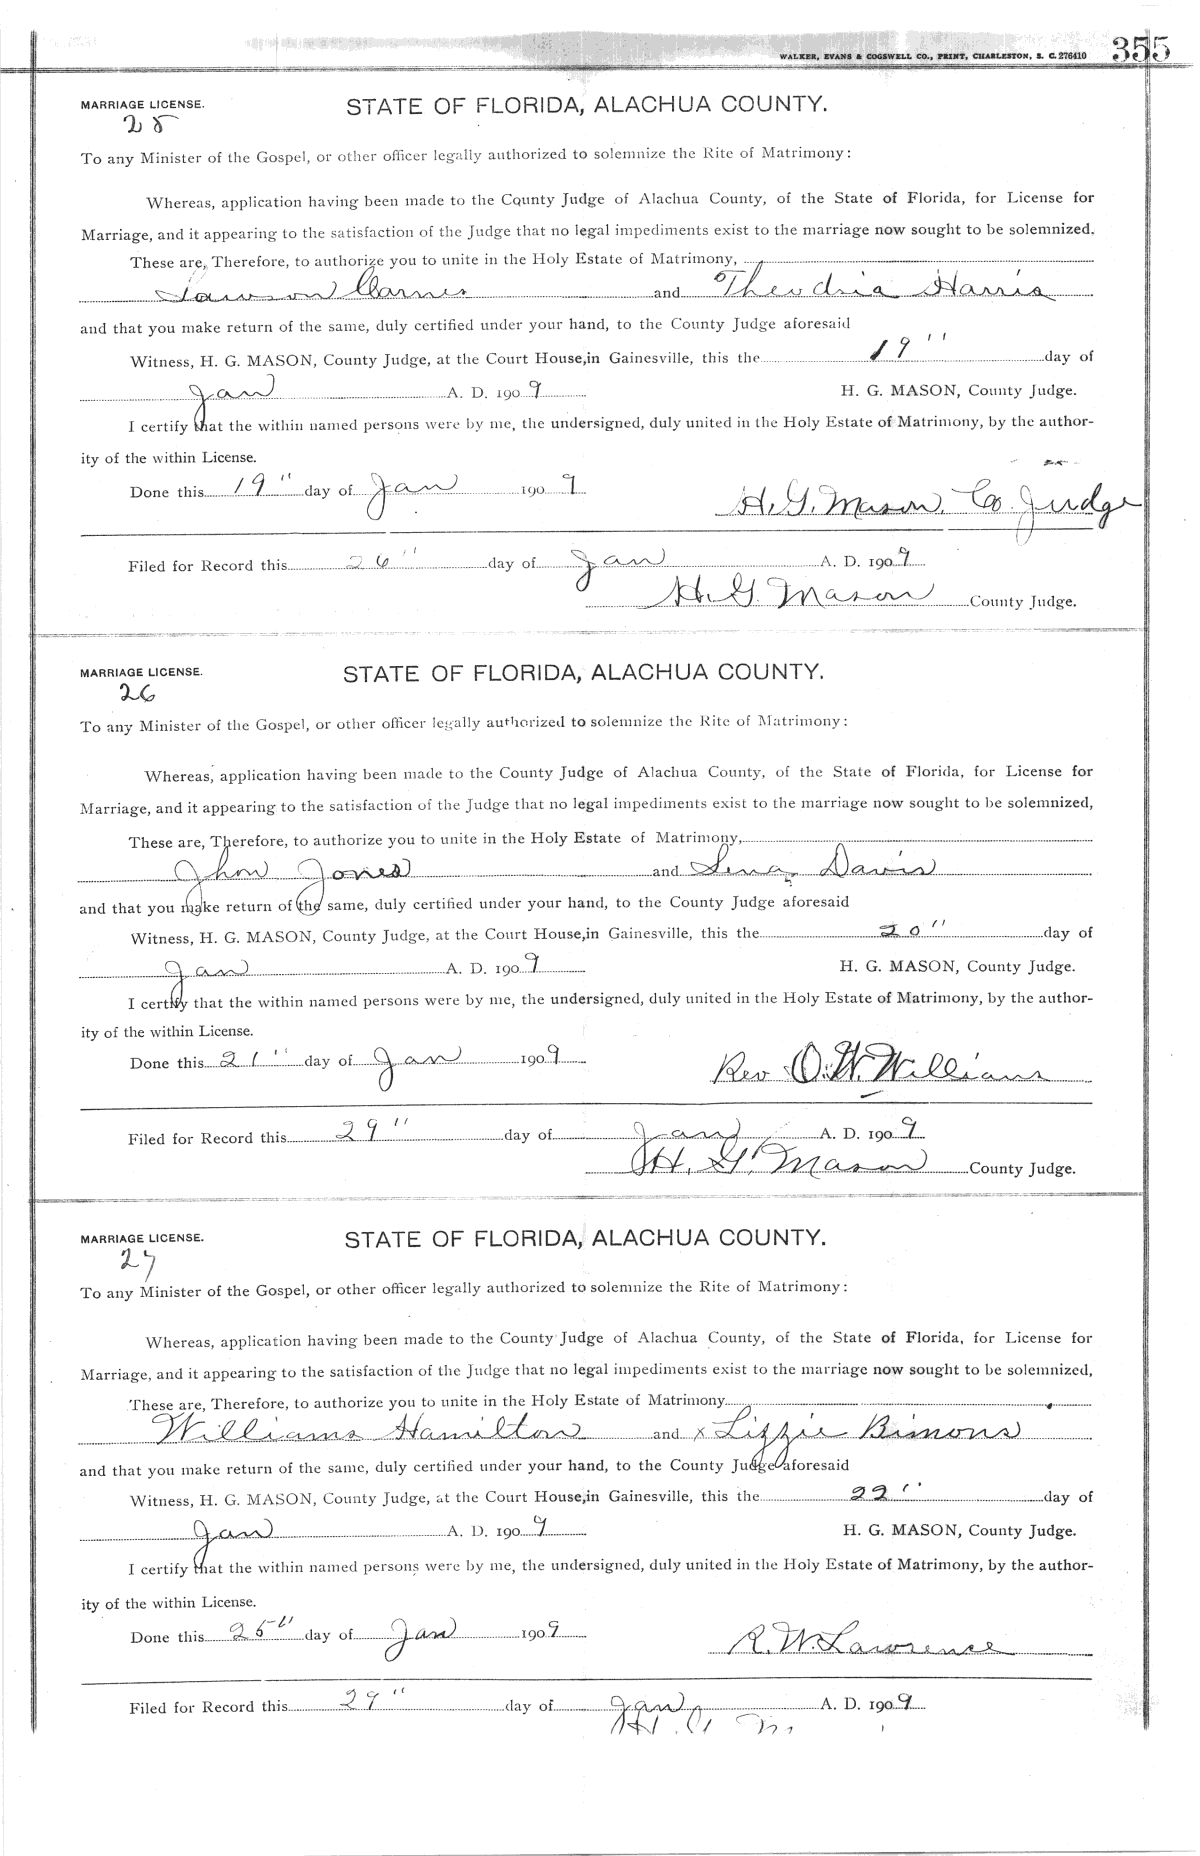 WALKER, EVANS & COGSWELL CO., PRINT, CHARLESTON, S. C. 276410 355
MARRIAGE LICENSE. STATE OF FLORIDA, ALACHUA COUNTY.
25
To any Minister of the Gospel, or other officer legally authorized to solemnize the Rite of Matrimony:
Whereas, application having been made to the County Judge of Alachua County, of the State of Florida, for License for
Marriage, and it appearing to the satisfaction of the Judge that no legal impediments exist to the marriage now sought to be solemnized.
These are, Therefore, to authorize you to unite in the Holy Estate of Matrimony,
Lawson and Theodria Harris
and that you make return of the same, duly certified under your hand, to the County Judge aforesaid
Witness, H. G. MASON, County Judge, at the Court House, in Gainesville, this the 19" day of
Jan A. D. 1909 H. G. MASON, County Judge.
I certify that the within named persons were by me, the undersigned, duly united in the Holy Estate of Matrimony, by the author-
ity of the within License.
Done this 19" day of Jan 1909
H. G. Mason, Co. Judge
Filed for Record this 26" day of Jan A. D. 1909
H. G. Mason County Judge.
MARRIAGE LICENSE. STATE OF FLORIDA, ALACHUA COUNTY.
26
To any Minister of the Gospel, or other officer legally authorized to solemnize the Rite of Matrimony:
Whereas, application having been made to the County Judge of Alachua County, of the State of Florida, for License for
Marriage, and it appearing to the satisfaction of the Judge that no legal impediments exist to the marriage now sought to be solemnized,
These are, Therefore, to authorize you to unite in the Holy Estate of Matrimony,
Jhon Jones and Lena Davis
and that you make return of the same, duly certified under your hand, to the County Judge aforesaid
Witness, H. G. MASON, County Judge, at the Court House, in Gainesville, this the 20" day of
Jan A. D. 1909 H. G. MASON, County Judge.
I certify that the within named persons were by me, the undersigned, duly united in the Holy Estate of Matrimony, by the author-
ity of the within License.
Done this 21" day of Jan 1909
Rev O. W. Williams
Filed for Record this 29" day of Jan A. D. 1909
H. G. Mason County Judge.
MARRIAGE LICENSE. STATE OF FLORIDA, ALACHUA COUNTY.
27
To any Minister of the Gospel, or other officer legally authorized to solemnize the Rite of Matrimony:
Whereas, application having been made to the County Judge of Alachua County, of the State of Florida, for License for
Marriage, and it appearing to the satisfaction of the Judge that no legal impediments exist to the marriage now sought to be solemnized,
These are, Therefore, to authorize you to unite in the Holy Estate of Matrimony
Williams Hamilton and x Lizzie Bimons
and that you make return of the same, duly certified under your hand, to the County Judge aforesaid
Witness, H. G. MASON, County Judge, at the Court House, in Gainesville, this the 22" day of
Jan A. D. 1909 H. G. MASON, County Judge.
I certify that the within named persons were by me, the undersigned, duly united in the Holy Estate of Matrimony, by the author-
ity of the within License.
Done this 25" day of Jan 1909
R. W. Lawrence
Filed for Record this 29" day of Jan A. D. 1909